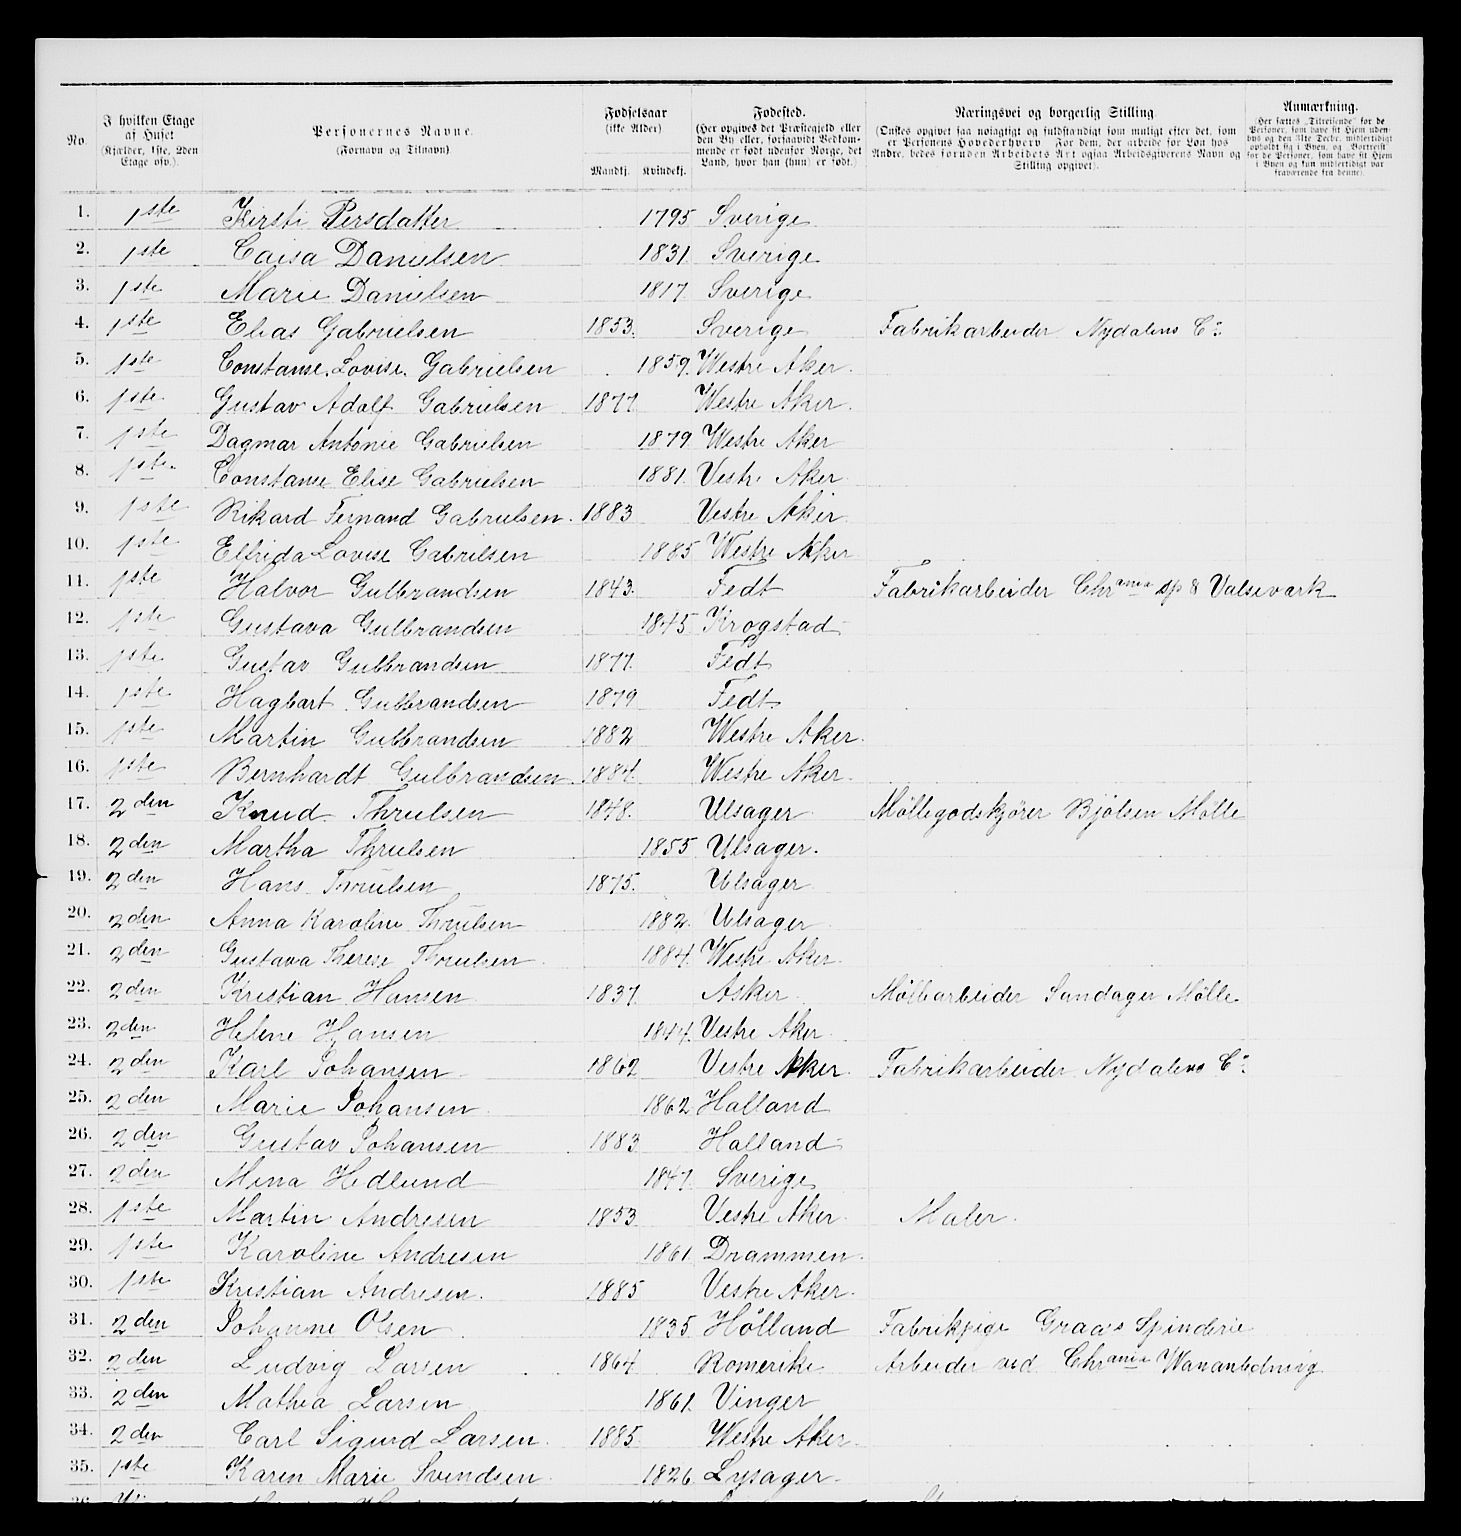 No.
I hvilken Etage af Huset (Kjælder, 1ste, 2den Etage osv.).
Personernes Navne. (Fornavn og Tilnavn).
Fødselsaar (ikke Alder) Mandkj. Kvindekj.
Fødested. (Her opgives det Præstegjeld eller den By eller, forsaavidt Vedkommende er født udenfor Norge, det Land, hvor han (hun) er født.)
Næringsvei og borgerlig Stilling (Ønskes opgivet saa nøiagtigt og fuldstændigt som muligt efter det, som er Personens Hovederhverv For dem, der arbeide for Løn hos Andre, bedes foruden Arbeidets Art ogsaa Arbeidsgiverens Navn og Stilling opgivet).
Anmærkning. (Her sættes „Tilreisende“ for de Personer, som have sit Hjem udenbys og den 31te Decbr. midlertidigt opholdt sig i Byen, og „Bortreist“ for de Personer, som have sit Hjem i Byen og kun midlertidigt var fraværende fra denne).
1. 1ste Kirsti Persdatter 1795 Sverige
2. 1ste Caisa Danielsen 1831 Sverige
3. 1ste Marie Danielsen 1817 Sverige
4. 1ste Elias Gabrielsen 1853. Sverige Fabrikarbeider Nydalens Co
5. 1ste Constanse Lovise Gabrielsen 1859. Westre Aker.
6. 1ste Gustav Adolf Gabrielsen 1877 Westre Aker.
7. 1ste Dagmar Antonie Gabrielsen 1879 Westre Aker
8. 1ste Constanse Elise Gabrielsen 1881. Vestre Aker
9. 1ste Rikard Fernand Gabrielsen. 1883 Vestre Aker
10. 1ste Elfrida Lovise Gabrielsen 1885 Westre Aker
11. 1ste Halvor Gulbrandsen 1843. Fedt Fabrikarbeider Chrania sp & Valseverk
12. 1ste Gustava Gulbrandsen 1845 Krogstad
13. 1ste Gustav Gulbrandsen 1877. Fedt
14. 1ste Hagbart Gulbrandsen 1879 Fedt
15. 1ste Martin Gulbrandsen 1882 Westre Aker.
16. 1ste Bernhardt Gulbrandsen 1884. Westre Aker.
17. 2den Knud Thrulsen 1848. Ulsager Møllegodskjører Bjølsen Mølle
18. 2den Martha Thrulsen 1855 Ulsager.
19. 2den Hans Thrulsen 1875. Ulsager
20. 2den Anna Karoline Thrulsen 1882. Ulsager
21. 2den Gustava Therese Thrulsen 1884. Westre Aker.
22. 2den Kristian Hansen 1837. Asker Møllearbeider Sandager Mølle
23. 2den Helene Hansen 1844. Vestre Aker
24. 2den Karl Johansen 1862 Vestre Aker. Fabrikarbeider Nydalens Co
25. 2den Marie Johansen 1862 Halland
26. 2den Gustav Johansen 1883 Halland
27. 2den Mina Hedlund 1847. Sverige
28. 1ste Martin Andresen 1853 Vestre Aker. Maler.
29. 1ste Karoline Andresen 1861. Drammen.
30. 1ste Kristian Andresen. 1885 Vestre Aker.
31. 2den Johanne Olsen 1835. Høland Fabrikpige Graaes Spinderie
32. 2den Ludvig Larsen 1864. Romerike Arbeider ved Chrania
33. 2den Mathea Larsen 1861. Vinger
34. 2den Carl Sigurd Larsen. 1885. Westre Aker.
35. 1ste Karen Marie Svendsen. 1826. Lysager